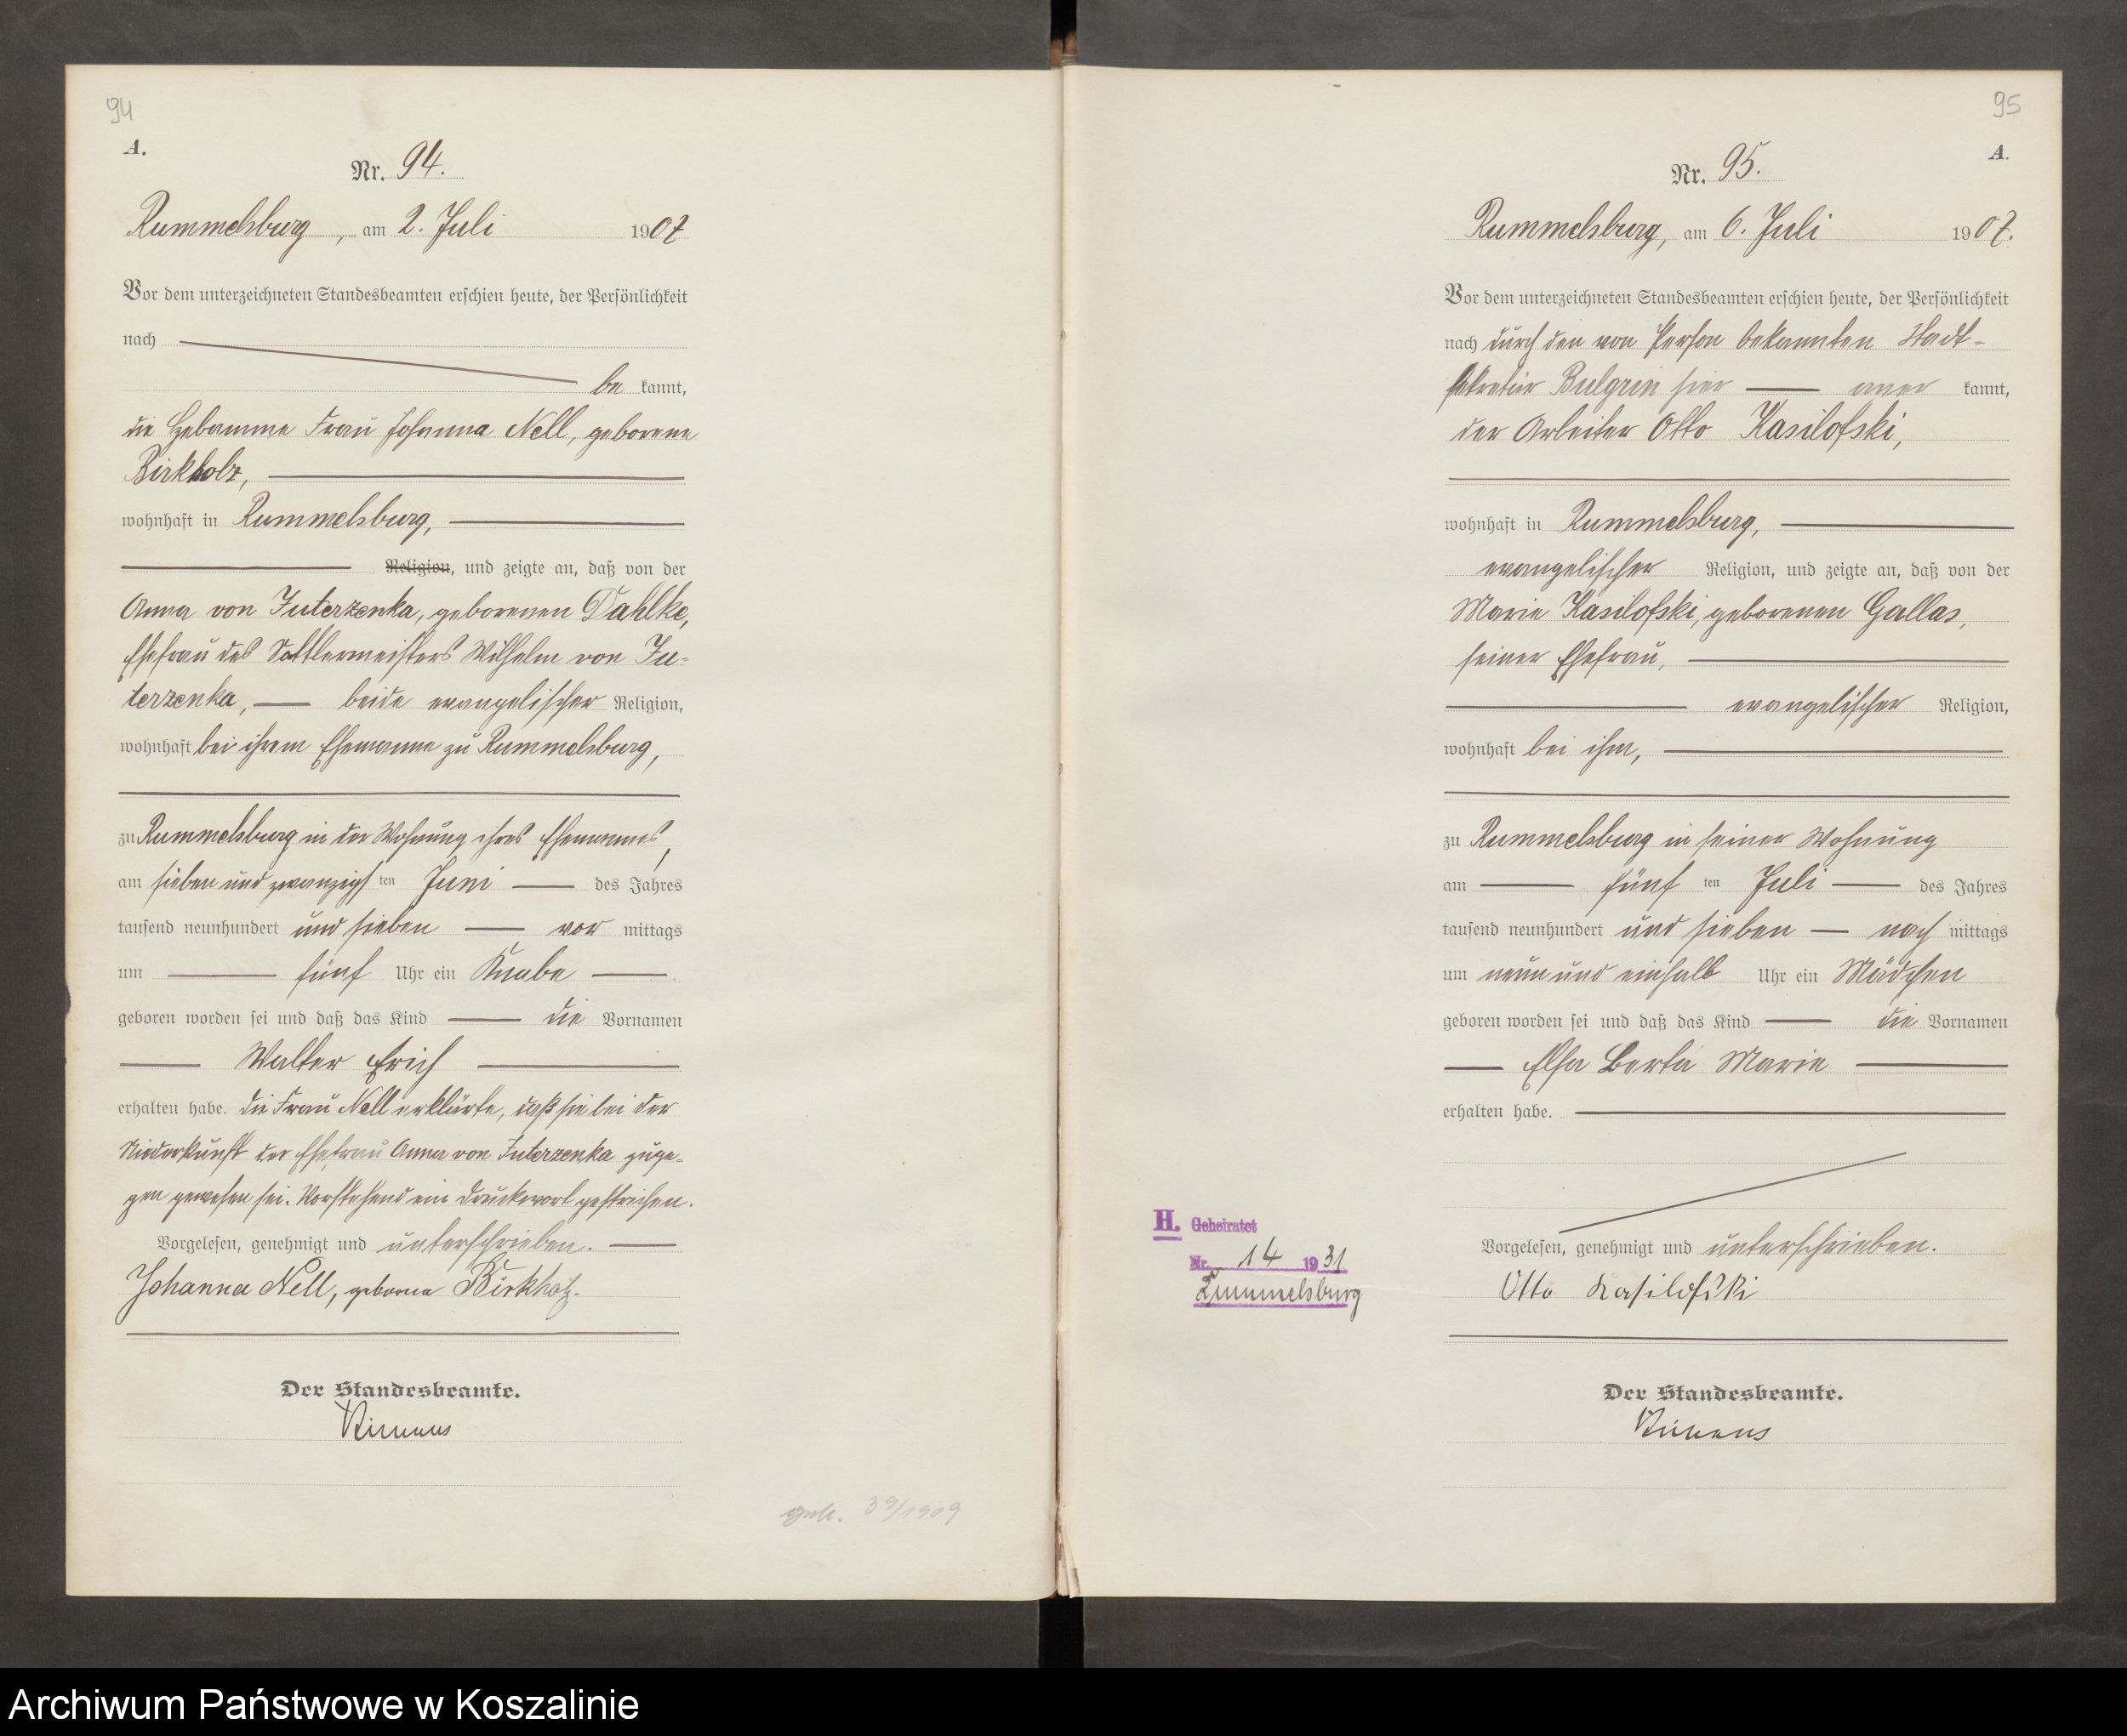 94
A.
Nr. 94.
Rummelsburg, am 2. Juli 1907
Vor dem unterzeichneten Standesbeamten erschien heute, der Persönlichkeit
nach
be kannt,
die Hebamme Frau Johanna Nell, geborene
Birkholz,
wohnhaft in Rummelsburg,
Religion, und zeigte an, daß von der
Anna von Juterzenka, geborenen Dahlke,
Ehefrau des Sattlermeisters Wilhelm von Ju-
terzenka, beide evangelischer Religion,
wohnhaft bei ihrem Ehemanne zu Rummelsburg,
zu Rummelsburg in der Wohnung ihres Ehemannes,
am sieben und zwanzigsten Juni des Jahres
tausend neunhundert und sieben vor mittags
um fünf Uhr ein Knabe
geboren worden sei und daß das Kind die Vornamen
Walter Erich
erhalten habe. Die Frau Nell erklärte, daß sie bei der
Niederkunft der Ehefrau Anna von Juterzenka zuge-
gen gewesen sei. Vorstehend ein Druckwort gestrichen.
Vorgelesen, genehmigt und unterschrieben.
Johanna Nell, geborene Birkholz.
Der Standesbeamte.
39/1909
95
A.
Nr. 95.
Rummelsburg, am 6. Juli 1907.
Vor dem unterzeichneten Standesbeamten erschien heute, der Persönlichkeit
nach durch den von Person bekannten Stadt-
sekretär Bulgrin hier aner kannt,
der Arbeiter Otto Kasilofski,
wohnhaft in Rummelsburg,
evangelischer Religion, und zeigte an, daß von der
Marie Kasilofski, geborenen Gallas,
seiner Ehefrau,
evangelischer Religion,
wohnhaft bei ihm,
zu Rummelsburg in seiner Wohnung
am fünften Juli des Jahres
tausend neunhundert und sieben nach mittags
um neun und einhalb Uhr ein Mädchen
geboren worden sei und daß das Kind die Vornamen
Elsa Berta Marie
erhalten habe.
H. Geheiratet
Nr. 14 1931
Rummelsburg
Vorgelesen, genehmigt und unterschrieben.
Otto Kasilofski
Der Standesbeamte.
Archiwum Państwowe w Koszalinie